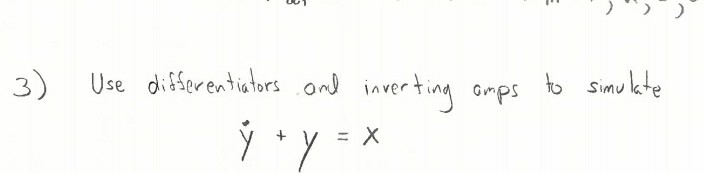 3) Use differentiators and inverting amps to simulate
ẏ + y = x